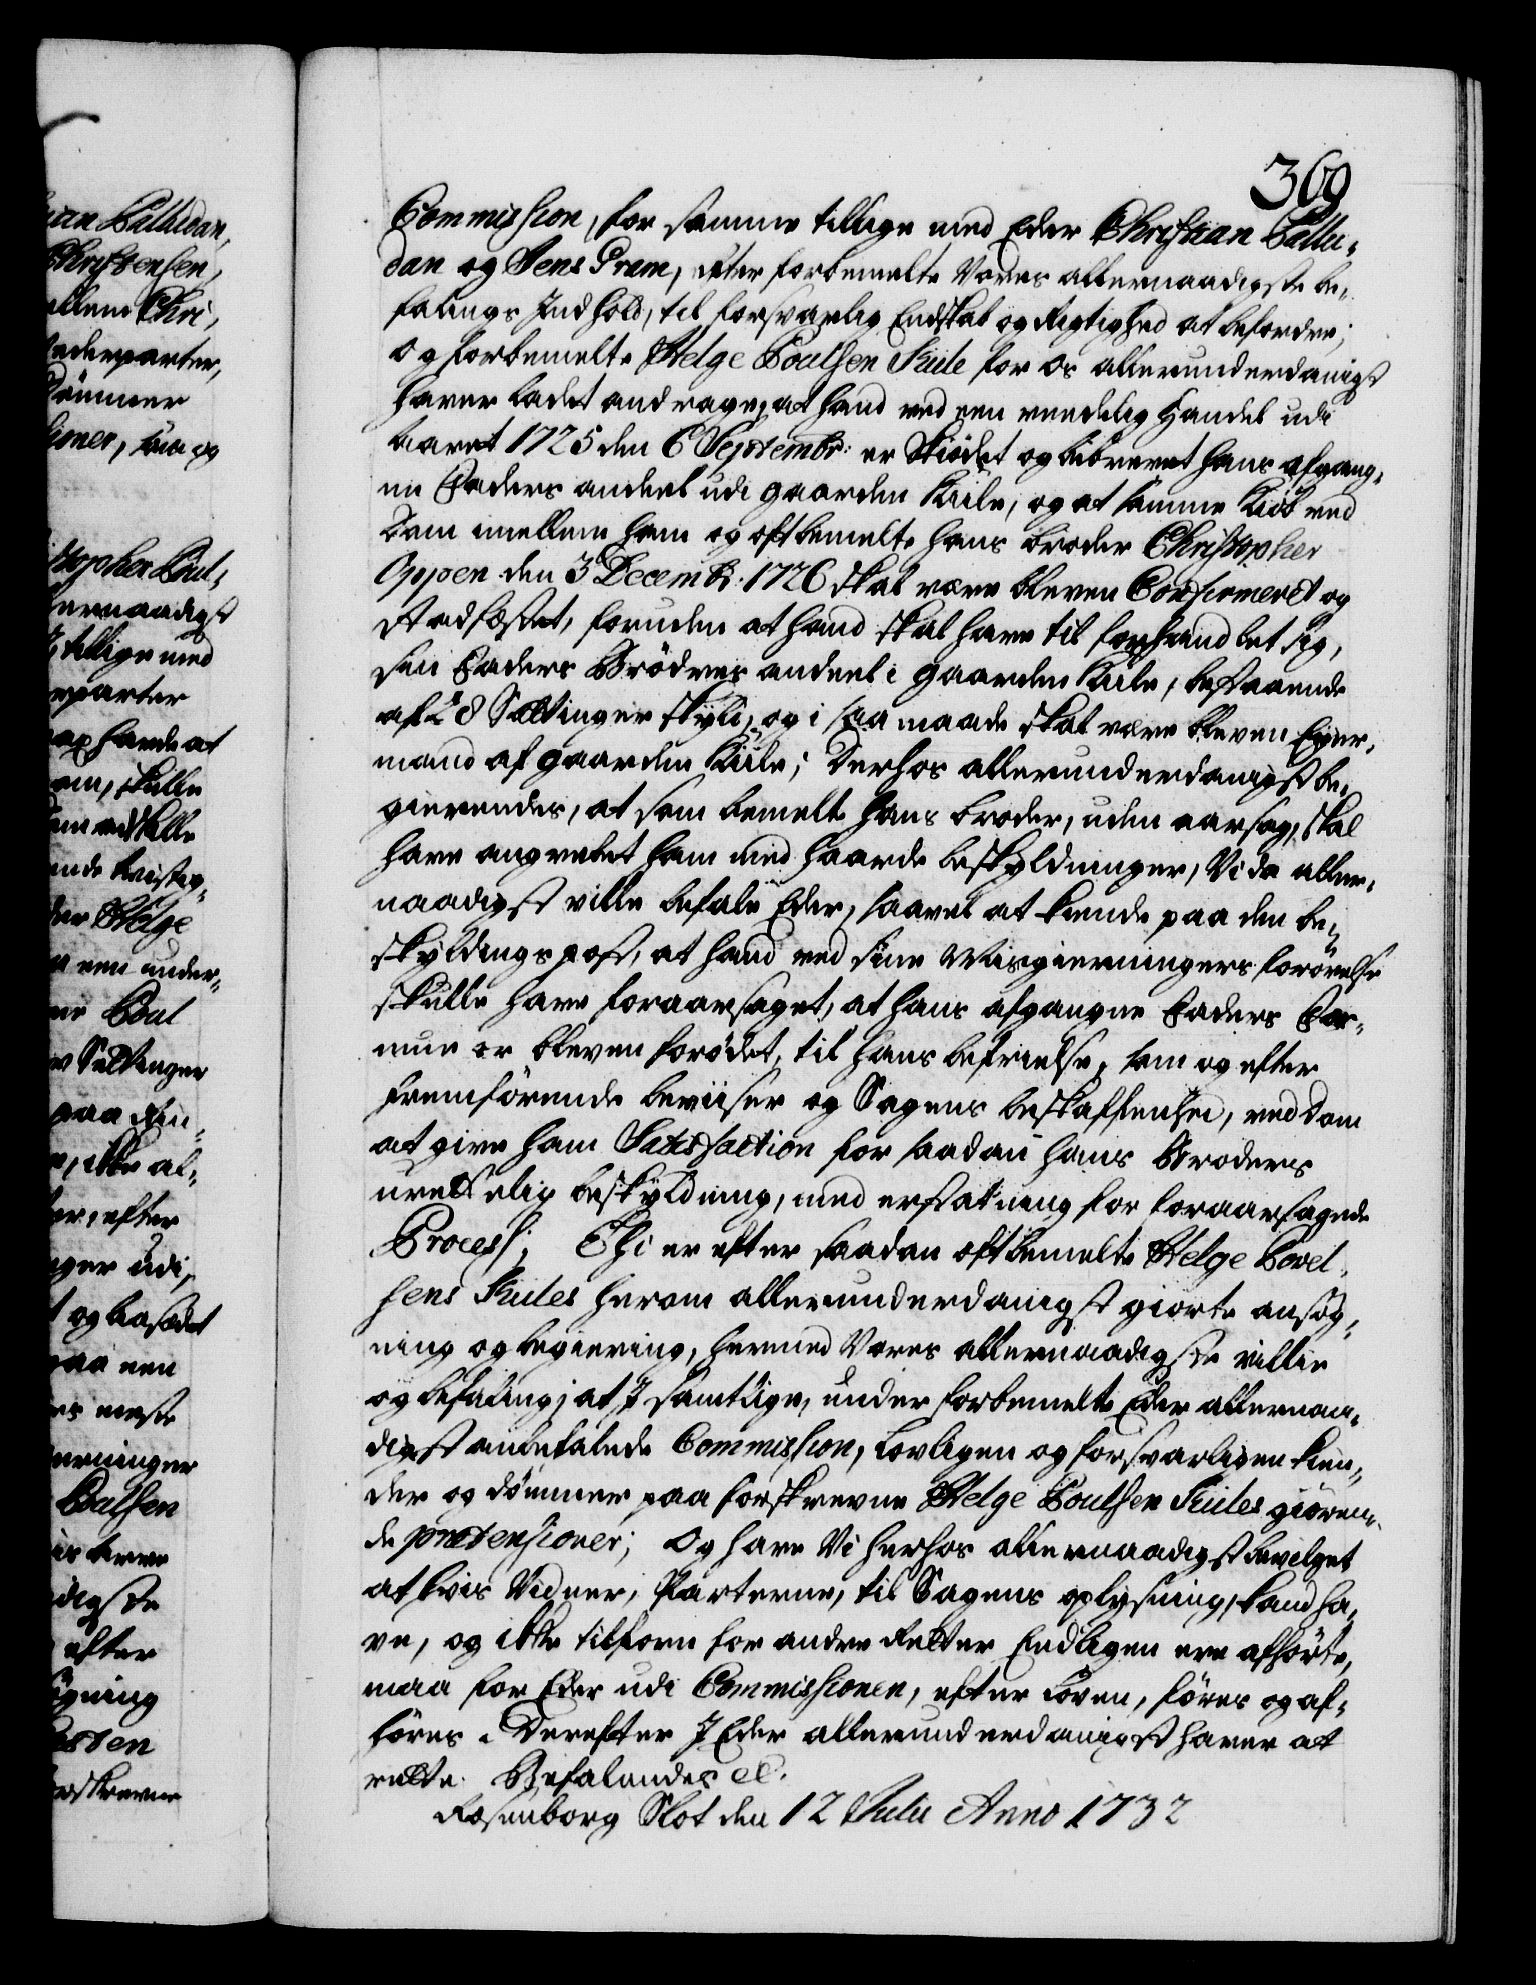 369
Commission, for samme tillige med Eder Christian Pallu-
dan og Jens Pram, efter forbemelte Vores allernaadigste be-
falings Indhold, til forsvarlig Endskab og Rigtighed at befordre;
og forbemelte Helge Poulsen Kiile for os allerunderdanigst
haver ladet andrage, at hand ved een vendelig Handel udi
aaret 1725 den 6 Septembr: er skiødet og bebrevet hans afgang-
ne Faders andeel udi gaarden Kiile, og at samme Kiøb ved
Dom imellem ham og oftbemelte hans broder Christopher
Oppen den 3 Decembr: 1726 skal være bleven Confirmeret og
Stadfæstet, foruden at hand skal have til forhandlet sig,
sin Faders Brødres andeel i gaarden Kiile, bestaaende
af 28 Settinger skyld, og i saa maade skal være bleven Eyer-
mand af gaarden Kiile; Derhos allerunderdanigst be-
gierendes, at som bemelte hans broder, uden aarsag, skal
have angrebet ham med haarde beskyldninger, Vi da aller-
naadigst ville befale Eder, saavel at kiende paa den be-
skyldings post, at hand ved sine Misgierningers forøvelse
skulle have foraarsaget, at hans afgangne Faders For-
mue er bleven forødet, til hans befrielse, som og efter
fremførende beviiser og Sagens beskaffenhed, ved Dom
at give ham Satisfaction for saadan hans Broders
urettelig beskyldning, med erstatning for foraarsagede
Process; Thi er efter saadan oftbemelte Helge Povel-
sens Kiiles herom allerunderdanigst giorte ansøg-
ning og begiering, hermed Vores allernaadigste villie
og befaling, at I samtlige, under forbemelte Eder allernaa-
digst anbefalede Commission, lovligen og forsvarligen kien-
der og dømmer paa forskrevne Helge Poulsen Kiiles giøren-
de prætensioner; Og have Vi herhos allernaadigst bevilget
at hvis Vidner, Parterne, til Sagens oplysning, kand ha-
ve, og ikke tilforn for andre Retter Endeligen ere afhørte,
maa for Eder udi Commissionen, efter Loven, føres og af-
høres. Derefter I Eder allerunderdanigst haver at
rette. Befalendes etc.
Rosenborg Slot den 12 Julii Anno 1732